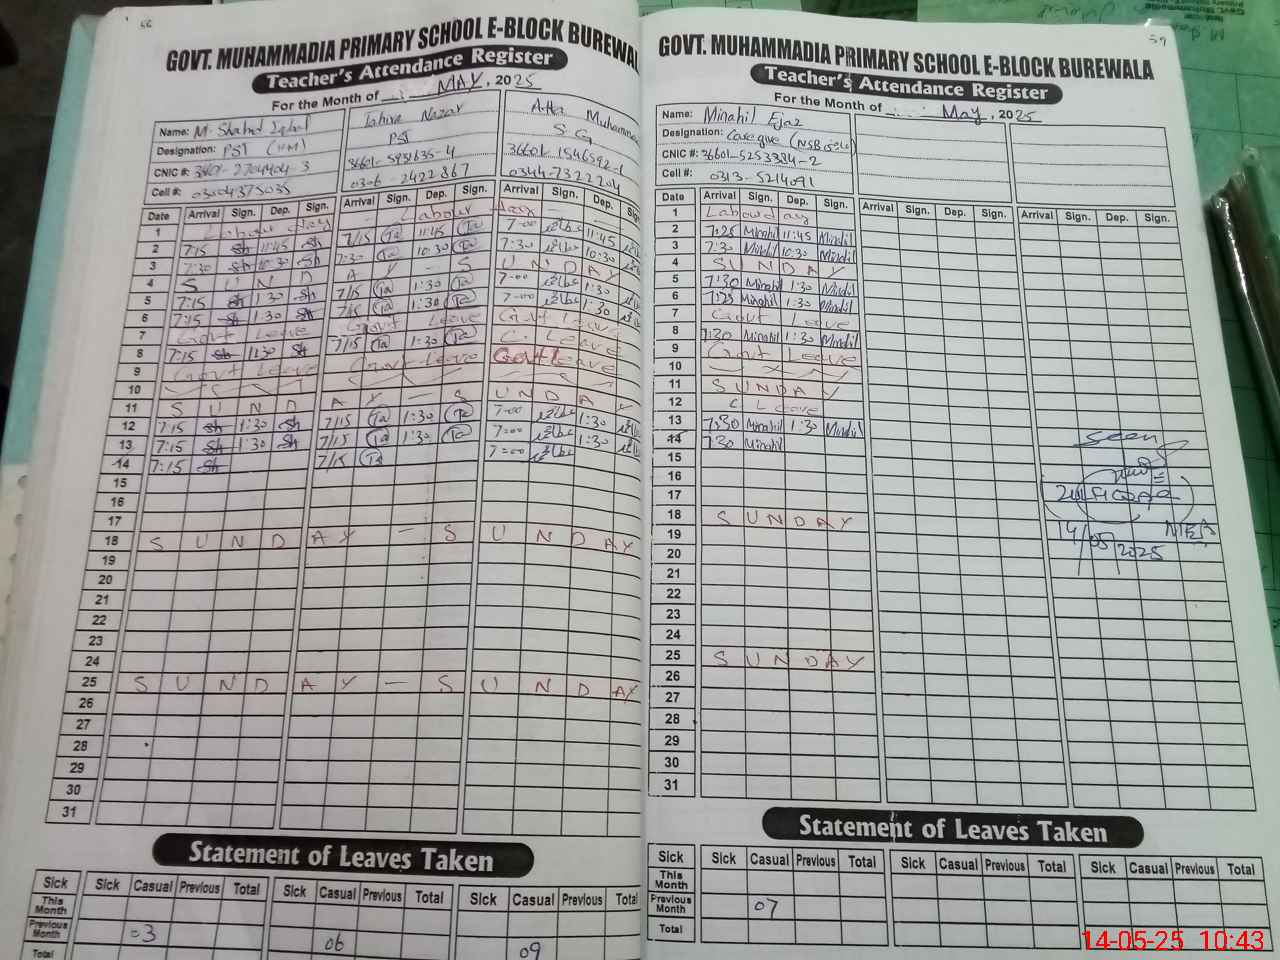 56
GOVT. MUHAMMADIA PRIMARY SCHOOL E-BLOCK BUREWAL
Teacher's Attendance Register
For the Month of MAY, 2025
Name: M. Shahid Iqbal Tahira Nazar Atta Muhamma
Designation: PST (HM) PST S G
CNIC #: 36601-5931635-4 36601-1546592-1
Cell #: 03004375035 0306-2422867 0344-7322204
Date Arrival Sign. Dep. Sign. Arrival Sign. Dep. Sign. Arrival Sign. Dep. Sign
1 Labour day - Labour day -
2 7:15 Sh 11:45 Sh 7/15 Ta 11:45 Ta 7-00 11:45
3 7:30 Sh 10:30 Sh 7:30 Ta 10:30 Ta 7:30 10:30
4 S U N D A Y - S U N D A Y
5 7:15 Sh 1:30 Sh 7/15 Ta 1:30 Ta 7-00 1:30
6 7:15 Sh 1:30 Sh 7/15 Ta 1:30 Ta 7-00 1:30
7 Govt Leave Govt Leave Govt Leave
8 7:15 Sh 1:30 Sh 7/15 Ta 1:30 Ta C. Leave
9 Govt Leave Govt Leave Govt Leave
10
11 S U N D A Y - S U N D A Y
12 7:15 Sh 1:30 Sh 7/15 Ta 1:30 Ta 7-00 1:30
13 7:15 Sh 1:30 Sh 7/15 Ta 1:30 Ta 7=00 1:30
14 7:15 Sh 7/15 Ta 7=00
15
16
17
18 S U N D A Y - S U N D A Y
19
20
21
22
23
24
25 S U N D A Y - S U N D A Y
26
27
28
29
30
31
Statement of Leaves Taken
Sick Sick Casual Previous Total Sick Casual Previous Total Sick Casual Previous Total
This Month
Previous Month 03 06 09
Total
59
GOVT. MUHAMMADIA PRIMARY SCHOOL E-BLOCK BUREWALA
Teacher's Attendance Register
For the Month of May, 2025
Name: Minahil Ejaz
Designation: Care give (NSB
CNIC #: 36601-5253384-2
Cell #: 0313-5214091
Date Arrival Sign. Dep. Sign. Arrival Sign. Dep. Sign. Arrival Sign. Dep. Sign.
1 Labour day
2 7:25 Minahil 11:45 Minahil
3 7:30 Minahil 10:30 Minahil
4 S U N D A Y
5 7:30 Minahil 1:30 Minahil
6 7:25 Minahil 1:30 Minahil
7 Govt Leave
8 7:30 Minahil 1:30 Minahil
9 Govt Leave
10
11 S U N D A Y
12 C Leave
13 7:30 Minahil 1:30 Minahil
14 7:30 Minahil
15
16
17
18 S U N D A Y
19
20
21
22
23
24
25 S U N D A Y
26
27
28
29
30
31
Seen
MEA
14/05/2025
Statement of Leaves Taken
Sick Sick Casual Previous Total Sick Casual Previous Total Sick Casual Previous Total
This Month
Previous Month 07
Total
14-05-25 10:43